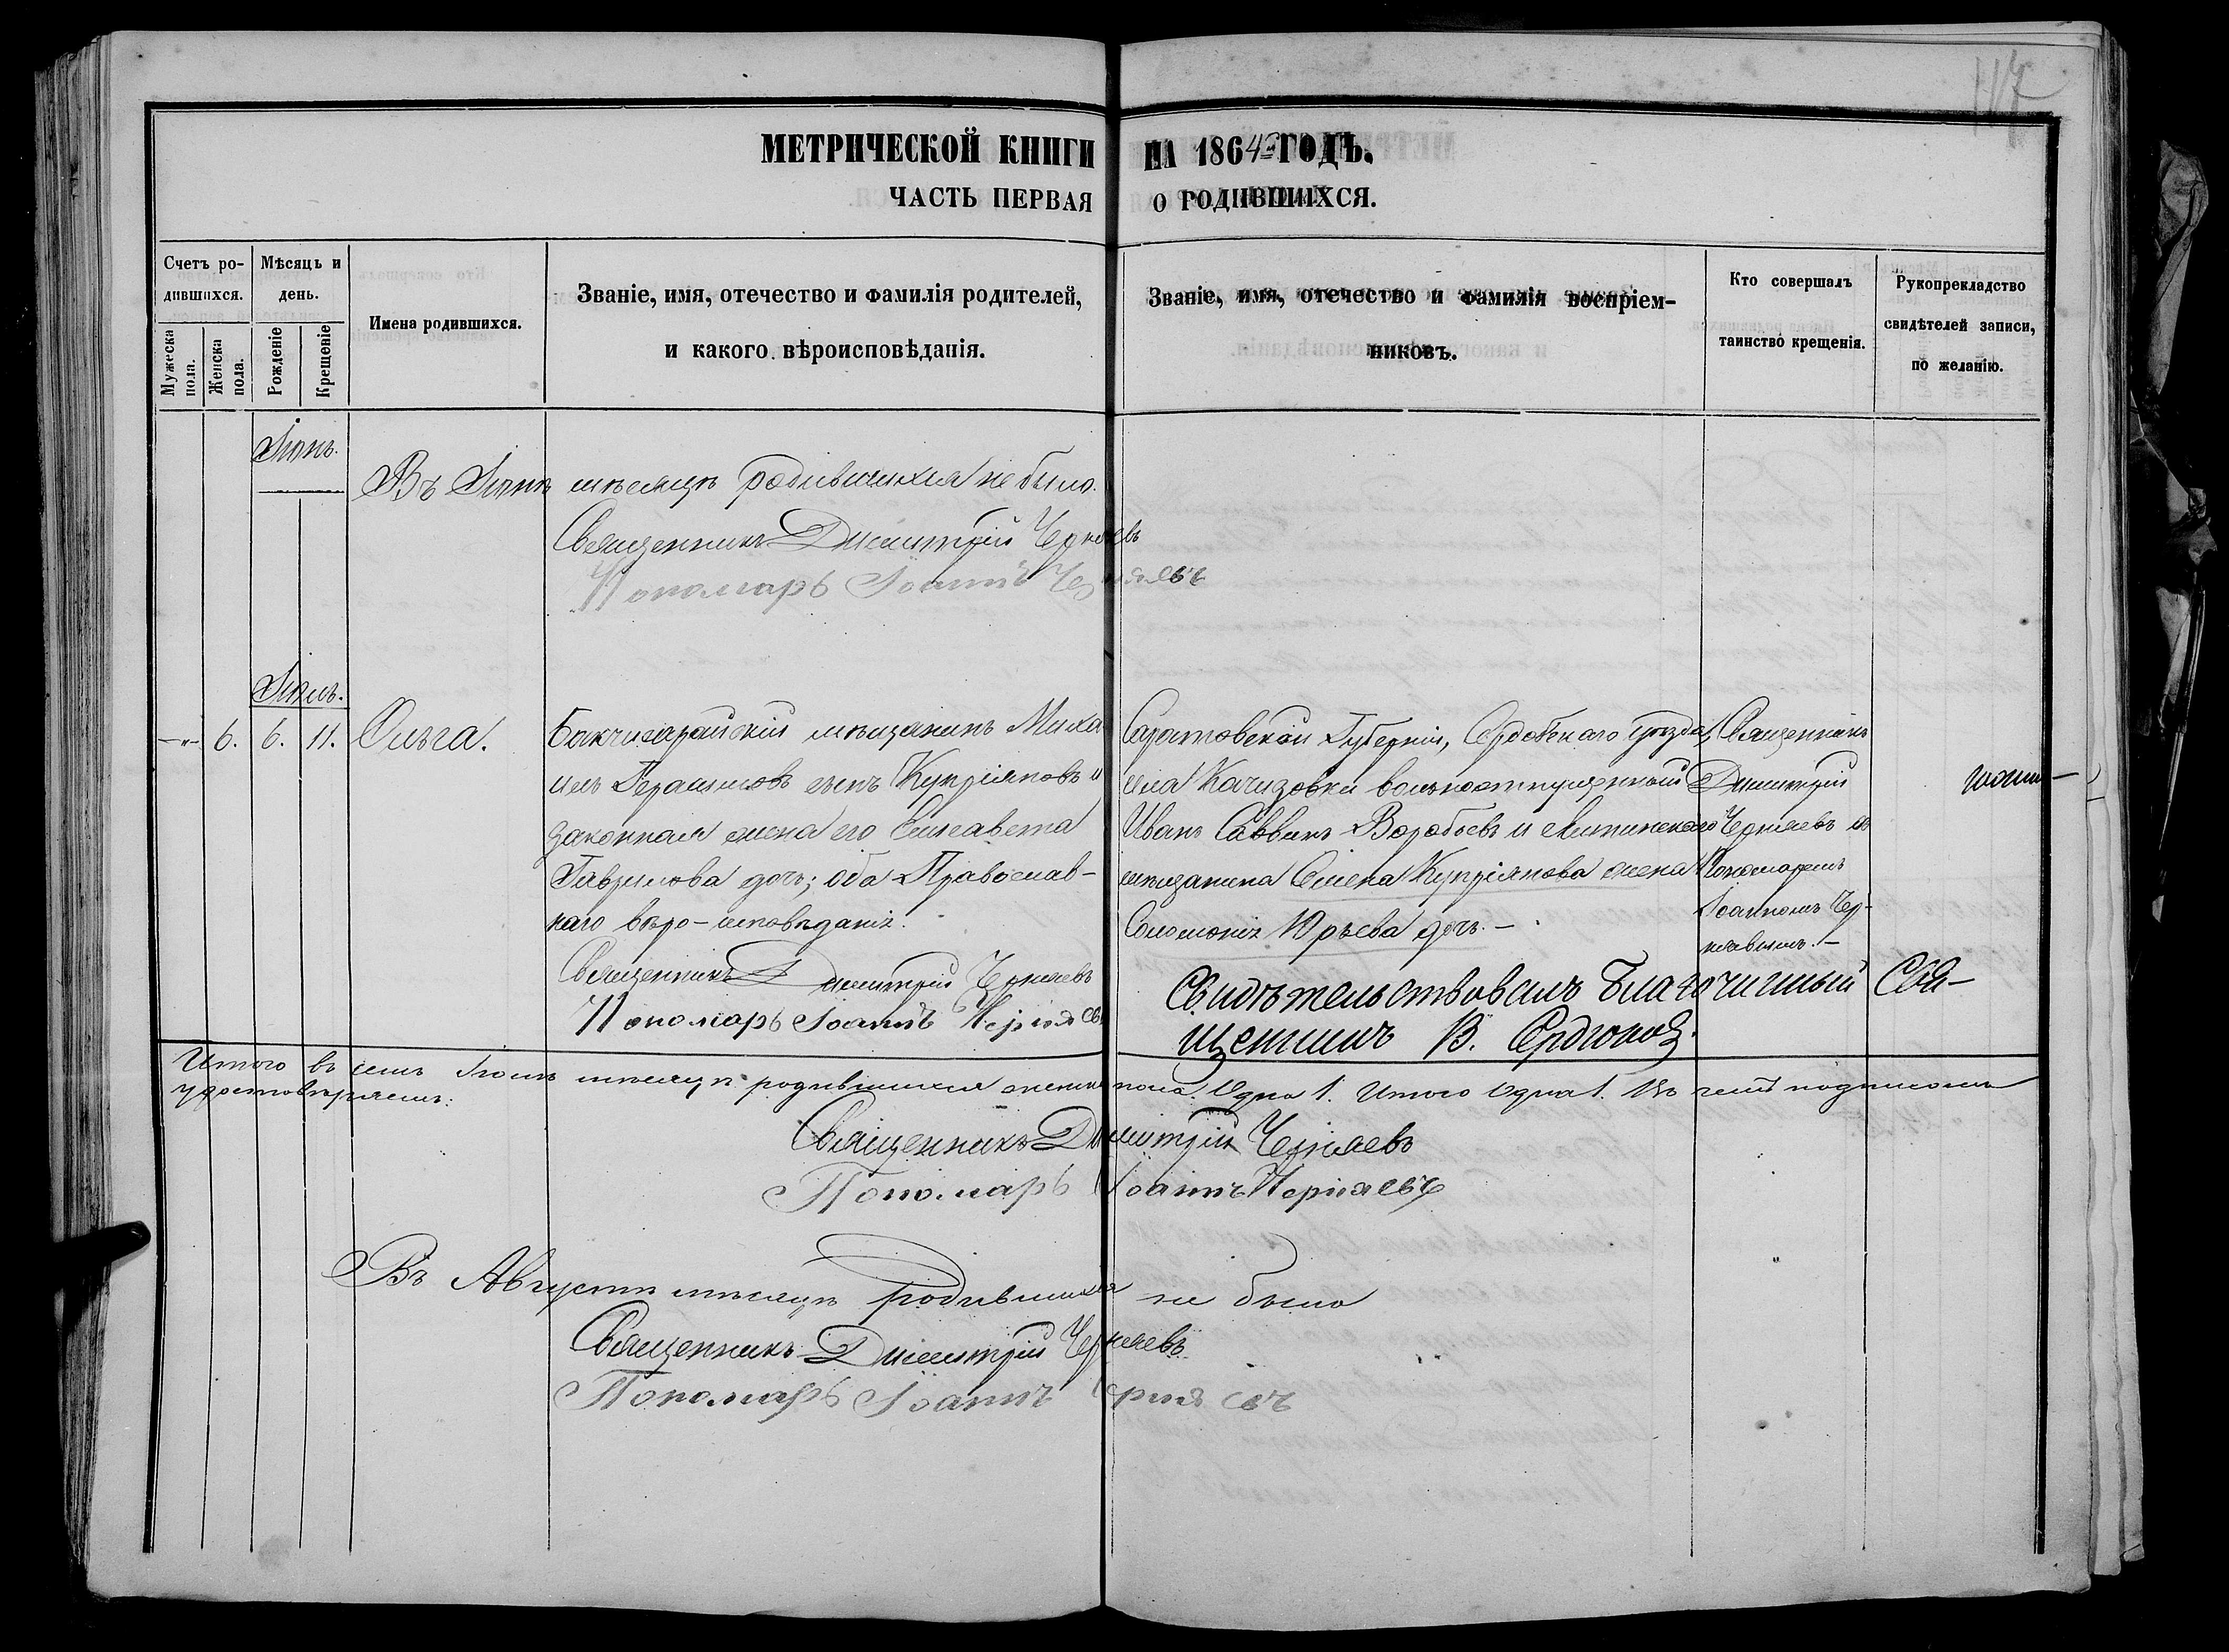 117
МЕТРИЧЕСКОЙ КНИГИ НА 1864й ГОДЪ.
ЧАСТЬ ПЕРВАЯ О РОДИВШИХСЯ.
Счетъ ро-
дившихся.
Мужеска пола.
Женска пола.
Мѣсяцъ и
день.
Рожденіе
Крещеніе
Имена родившихся.
Званіе, имя, отечество и фамилія родителей,
и какого вѣроисповѣданія.
Званіе, имя, отечество и фамилія воспріем-
никовъ.
Кто совершалъ
таинство крещенія.
Рукоприкладство
свидѣтелей записи,
по желанію.
Іюнь.
Въ Іюнѣ мѣсяцѣ родившихся не было.
Священникъ Димитрій Черняевъ
Пономарь Іоаннъ Черняевъ
Іюль.
-"- 6. 6. 11. Ольга.
Бакчисарайскій мѣщанинъ Миха
илъ Герасимовъ сынъ Купріяновъ и
законная жена его Елисавета
Гаврилова дочь; оба Православ-
наго вѣро-исповѣданія.
Священникъ Димитрій Черняевъ
Пономарь Іоаннъ Черняевъ
Саратовской Губерніи, Сердобскаго уѣзда,
села вольноотпущенный
Иванъ Саввинъ Воробьевъ и
мѣщанина Купріянова жена
Соломонія Юрьева дочь.-
Священникъ
Димитрій
Черняевъ съ
Пономаремъ
Іоанномъ Чер-
няевымъ.-
Свидѣтельствовалъ Благочинный Свя-
щенникъ В.
Итого въ семъ Іюлѣ мѣсяцѣ родившихся женска пола. Одна 1. Итого Одна 1. Въ чемъ подписомъ
удостовѣряемъ:
Священникъ Димитрій Черняевъ
Пономарь Іоаннъ Черняевъ
Въ Августѣ мѣсяцѣ родившихся не было
Священникъ Димитрій Черняевъ
Пономарь Іоаннъ Черняевъ